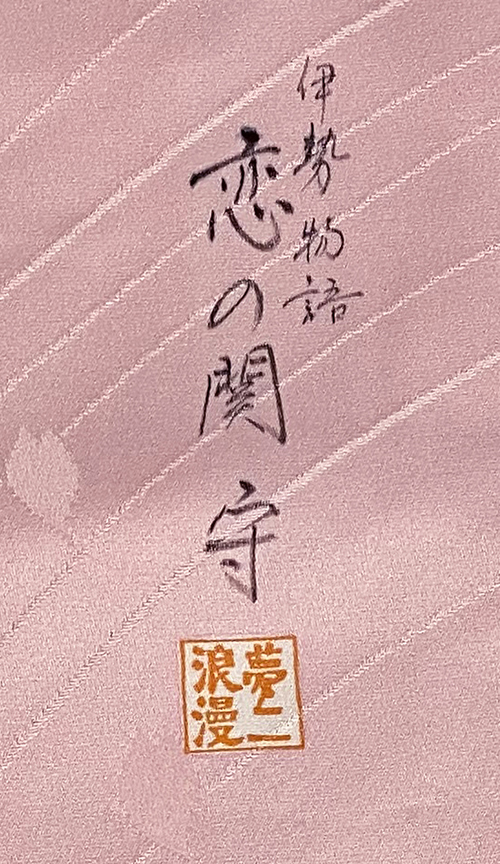 伊勢物語
恋の関守
夢二
浪漫